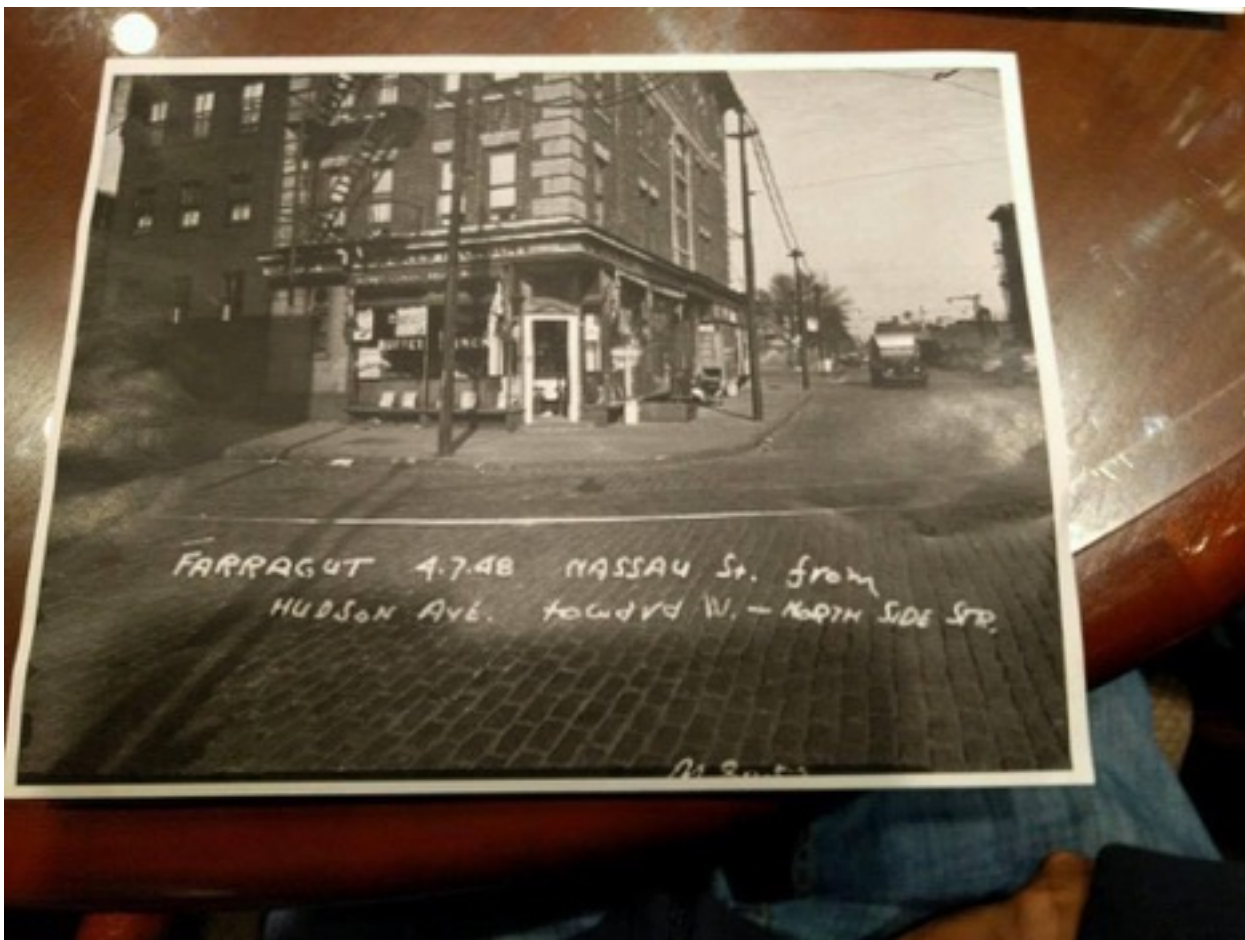 FARRAGUT 4.7.48 NASSAU St. from
HUDSON AVE. toward W. — NORTH SIDE STR.